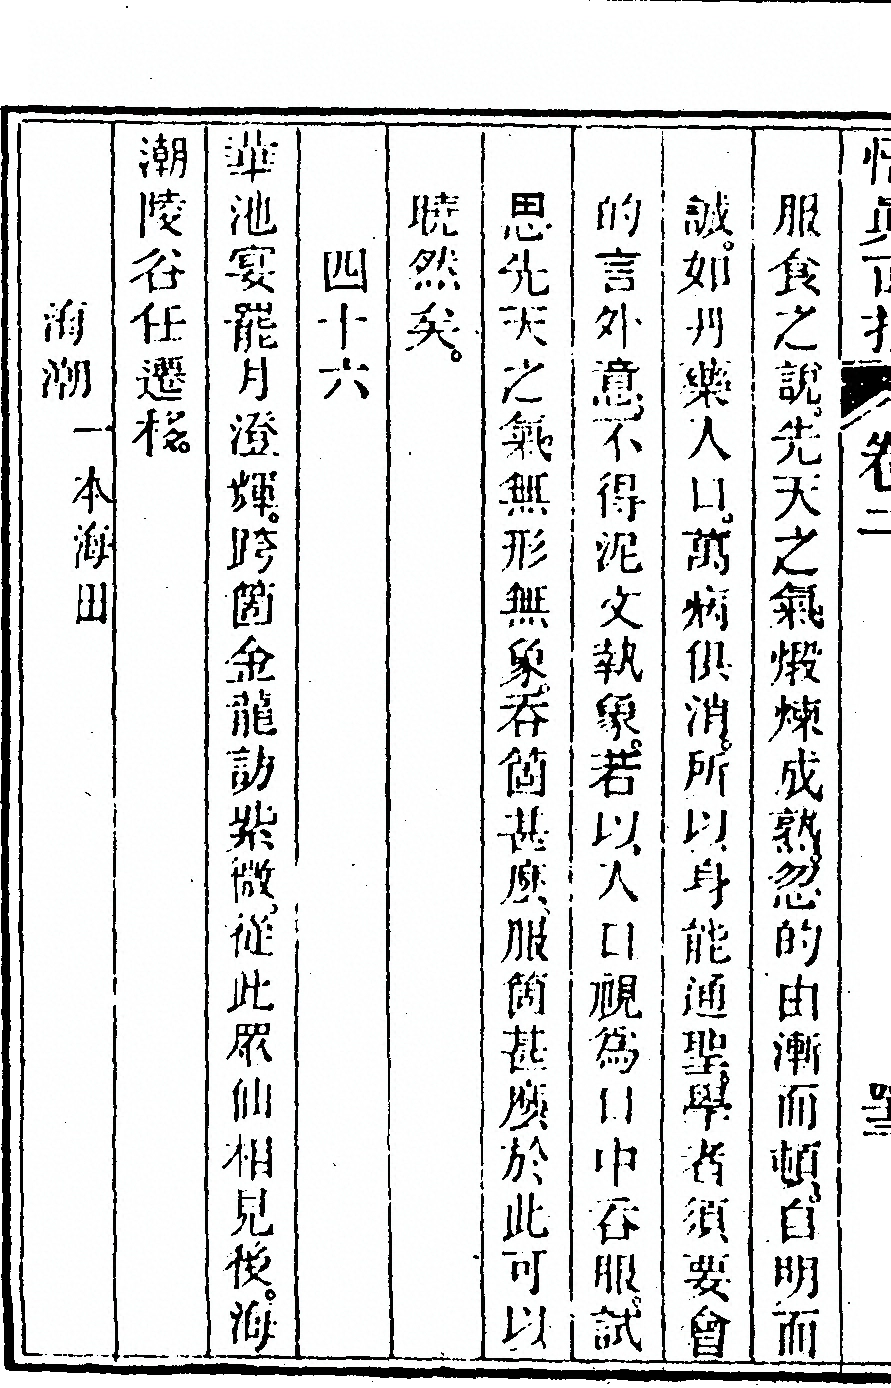 悟真直指 卷二
服食之說。先天之氣煅煉成熟。忽的由漸而頓。自明而
誠。如丹藥入口。萬病俱消。所以身能通聖。學者須要會
的言外意。不得泥文執象。若以入口視為口中吞服。試
思先天之氣無形無象。吞箇甚麼。服箇甚麼。於此可以
曉然矣。
四十六
華池宴罷月澄輝。跨箇金龍訪紫微。從此眾仙相見後。海
潮陵谷任遷移。
海潮一本海田